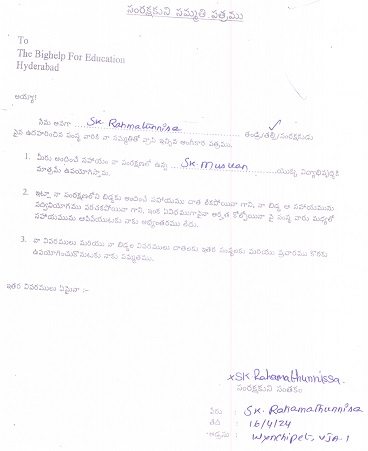 సంరక్షకుని సమ్మతి పత్రము
To
The Bighelp For Education
Hyderabad
అయ్యా!
నేను అనగా SK. Rahamathunnisa తండ్రి/తల్లి/సంరక్షకుడు
పైన ఉదహరించిన సంస్థ వారికి నా సమ్మతితో వ్రాసి ఇచ్చిన అంగీకార పత్రము.
1. మీరు అందించే సహాయం నా సంరక్షణలో ఉన్న SK. Muskan యొక్క విద్యాభివృద్ధికి
మాత్రమే ఉపయోగిస్తాము.
2. ఇట్లా నా సంరక్షణలోని బిడ్డకు అందించే సహాయము దాత లేకపోయినా గాని, నా బిడ్డ ఆ సహాయమును
సద్వినియోగము పరచకపోయినా గాని, ఇంక ఏవిధముగానైనా అర్హత కోల్పోయినా పై సంస్థ వారు మధ్యలో
సహాయమును ఆపివేయుటకు నాకు అభ్యంతరము లేదు.
3. నా వివరములు మరియు నా బిడ్డల వివరములు దాతలకు ఇతర సంస్థలకు మరియు ప్రచారము కొరకు
ఉపయోగించుకొనుటకు నాకు సమ్మతము.
ఇతర వివరములు ఏమైనా :-
SK Rahamathunnissa.
సంరక్షకుని సంతకం
పేరు : SK. Rahamathunnisa
తేది : 16/4/24
అడ్రసు : Wynchipet, VJA-1